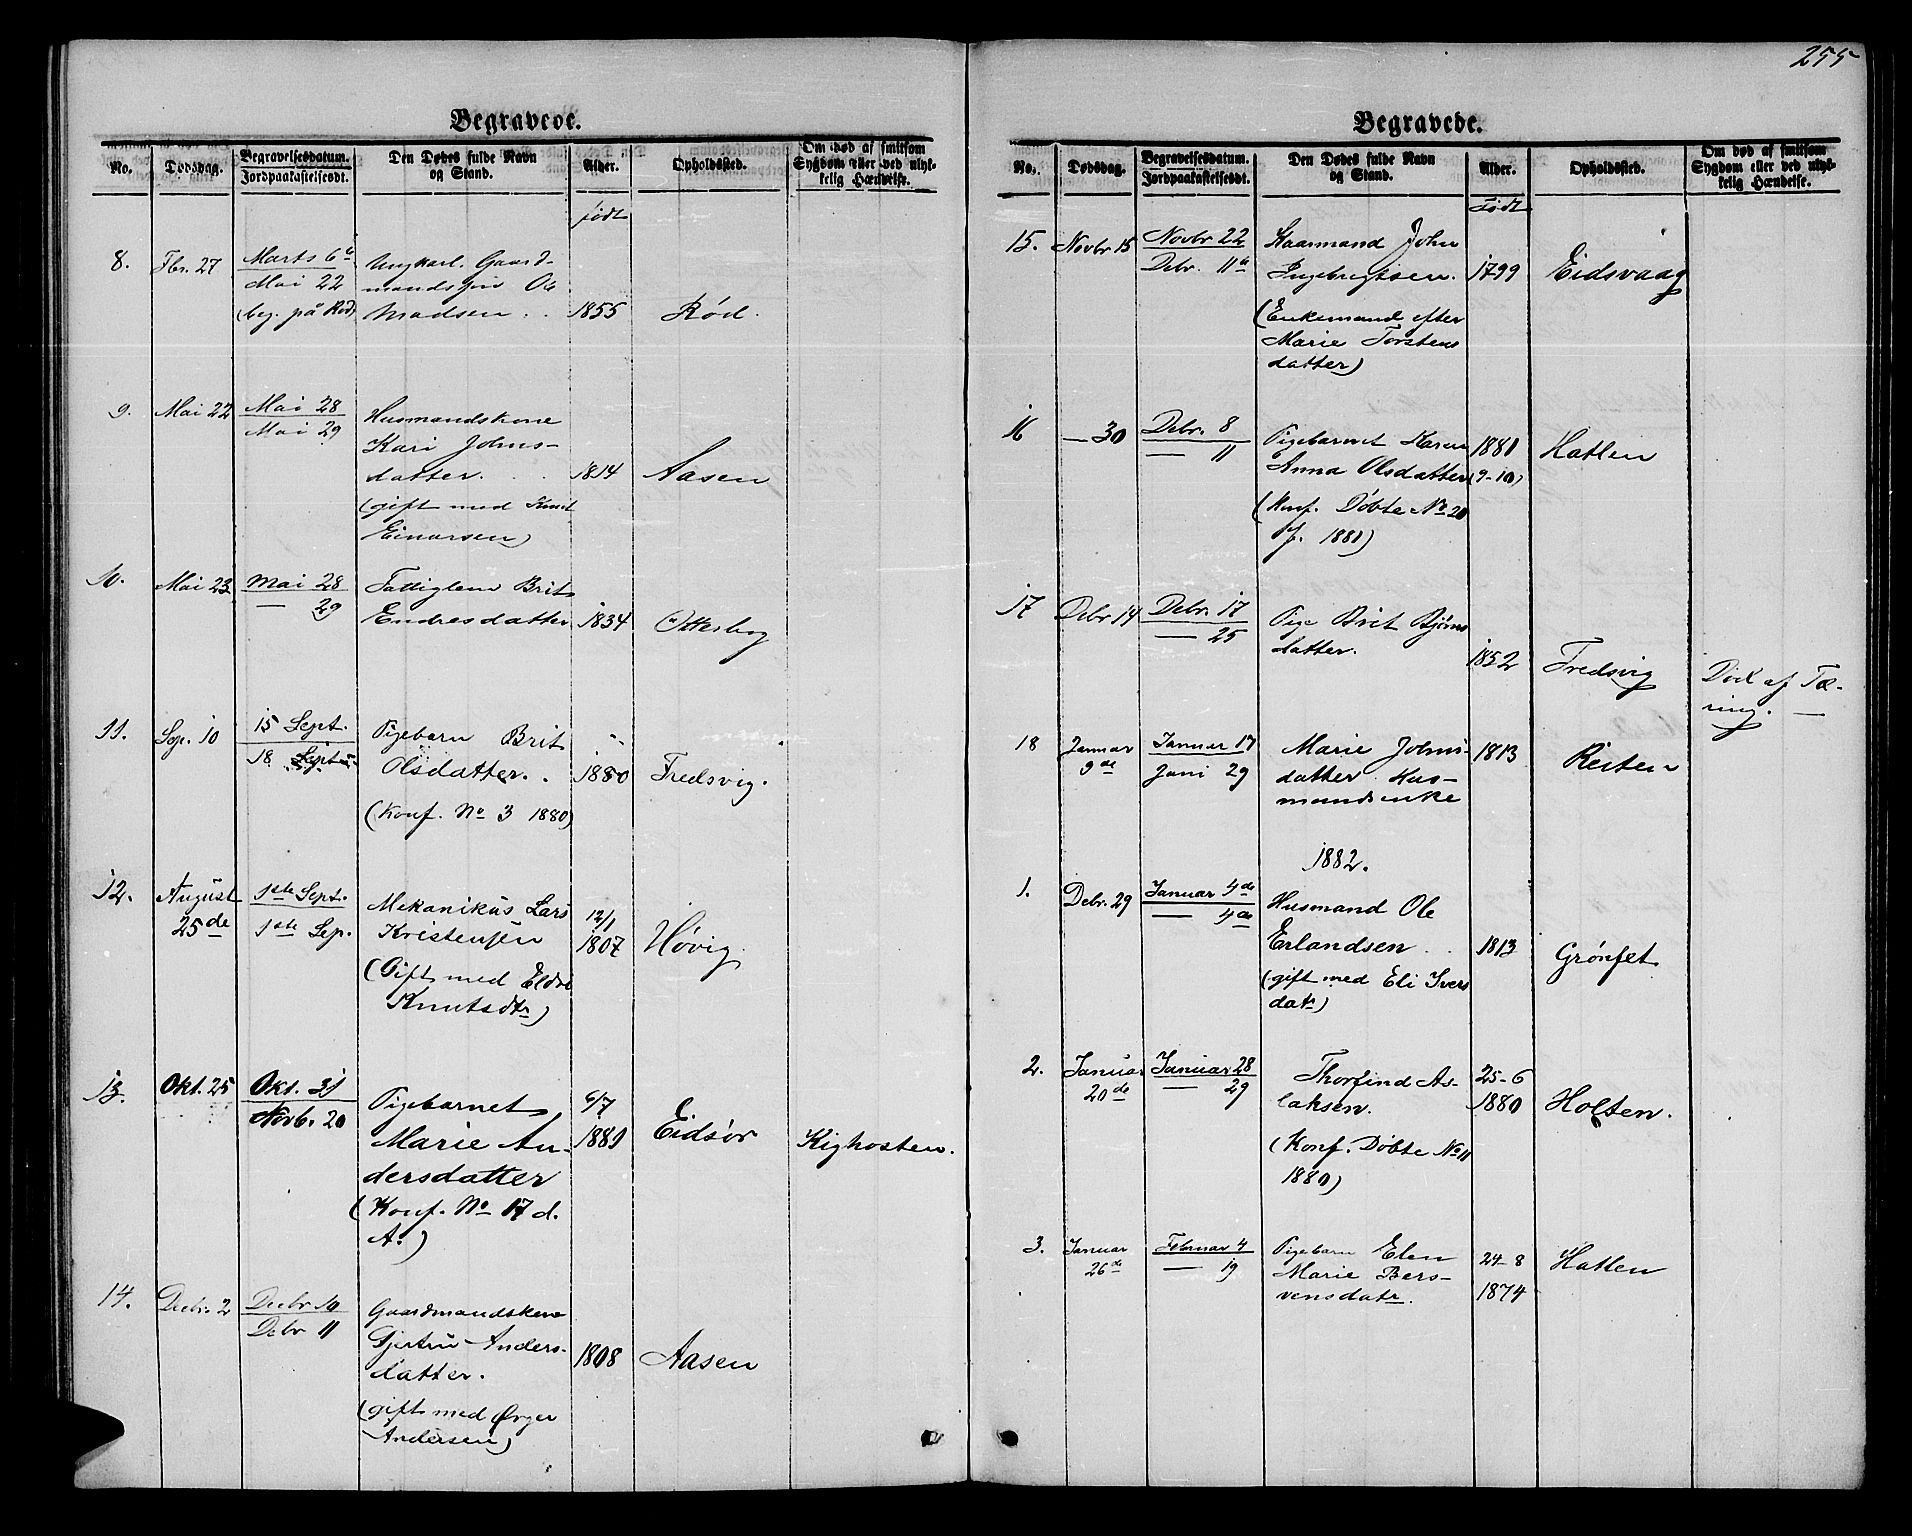 255
Begravede.
No.
Dødsdag.
Begravelsesdatum.
Jordpaakastelsesdt.
Den Dødes fulde Navn
og Stand.
Alder.
Opholdssted.
Om død af smitsom
Sygdom eller ved ulyk-
kelig Hændelse.
født
8. Fbr. 27
Marts 6te
Mai 22
(beg. på Rød)
Ungkarl. Gaard-
mandssøn Ole
Madsen . .
1855
Rød.
9. Mai 22
Mai 28
Mai 29
Husmandskone
Kari Johns-
datter. . .
(gift med Knut
Einarsen)
1814
Aasen
10. Mai 23
Mai 28
— 29
Fattiglem Brit
Endresdatter
1834
Otterbog
11. Sep. 10
15 Sept.
18 Sept.
Pigebarn Brit
Olsdatter. .
(Konf. No 3 1880)
1880
Fredsvig.
12. August
25de
1ste Sept.
1ste Sep.
Mekanikus Lars
Kristensen
(Gift med Eldri
Knutsdtr)
12/1
1807
Høvig.
13. Okt. 25
Okt. 31
Novb. 20
Pigebarnet
Marie An-
dersdatter
(Konf. No 17 d.
A.)
6/7
1881
Eidsør
Kighosten.
14. Decbr. 2
Decbr 10
Debr 11
Gaardmandskone
Gjertru Anders-
datter.
(gift med Ørger
Andersen)
1808
Aasen
Begravede.
No.
Dødsdag.
Begravelsesdatum.
Jordpaakastelsesdt.
Den Dødes fulde Navn
og Stand.
Alder.
Opholdssted.
Om død af smitsom
Sygdom eller ved ulyk-
kelig Hændelse.
Født
15. Novbr 15
Novbr 22
Debr. 11te
Kaarmand John
Ingebregtsen.
(Enkemand efter
Marie Torstens
datter)
1799
Eidsvaag
16 — 30
Debr. 8
— 11
Pigebarnet Karen
Anna Olsdatter
(Konf. Døbte No 20
f. 1881)
1881
(9-10)
Hatlen
17 Debr 14
Debr. 17
— 25
Pige Brit Bjørns
datter.
1852
Fredsvig
Død af Tæ-
ring. —
18 Januar
9de
Januar 17
Juni 29
Marie Johns-
datter. Hus-
mandsenke
1813
Reiten
1882.
1. Debr. 29
Januar 4de
— 4de
Husmand Ole
Erlandsen . .
(gift med Eli Ivers
datr)
1813
Grønset
2. Januar
20de
Januar 28
— 29
Thorfind As-
laksen.
(Konf. Døbte No 11
1880)
25-6
1880
Holten.
3. Januar
26de
Februar 4
— 19
Pigebarn Elen
Marie Bers-
vensdatr.
24-8
1874
Hatlen